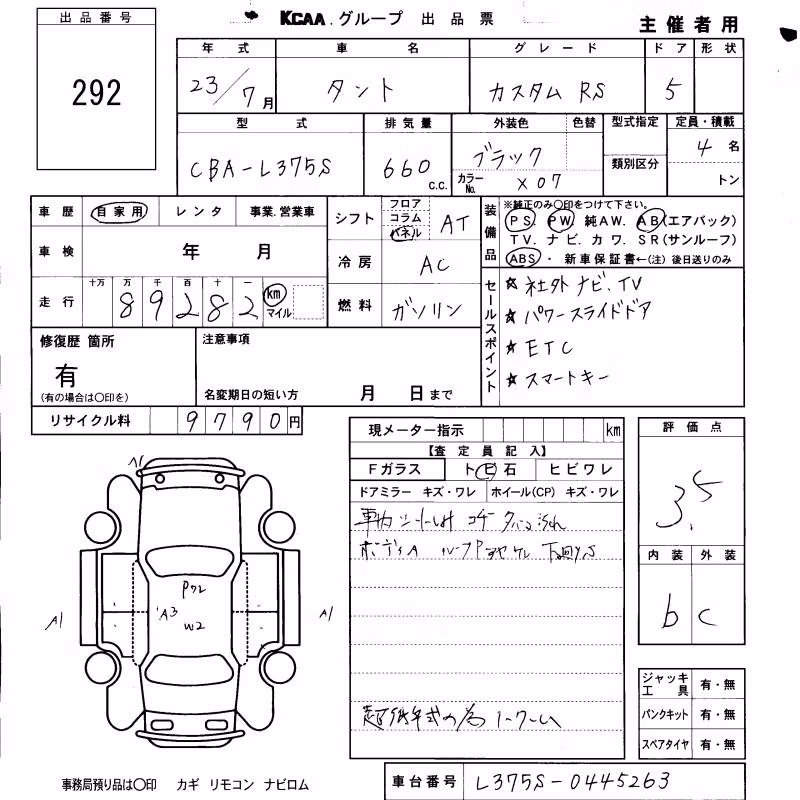 出品番号
292
KCAA.グループ 出品票
主催者用
年式 車名 グレード ドア 形状
23/7月 タント カスタム RS 5
型式 排気量 外装色 色替 型式指定 定員・積載
CBA-L375S 660 C.C. ブラック 類別区分 4名
カラーNo. X07 トン
車歴 自家用 レンタ 事業.営業車
シフト フロア コラム パネル AT
装備品
※純正のみ〇印をつけて下さい。
PS. PW 純AW. AB(エアバック)
TV. ナビ. カワ. SR(サンルーフ)
ABS・ 新車保証書←(注) 後日送りのみ
車検 年 月
冷房 AC
走行 十万 万 千 百 十 一
89282 km マイル
燃料 ガソリン
セールスポイント
☆ 社外ナビ.TV
☆ パワースライドドア
★ ETC
★ スマートキー
修復歴 箇所
有
(有の場合は〇印を)
注意事項
名変期日の短い方 月 日まで
リサイクル料 9790円
現メーター指示 km
【査定員記入】
Fガラス トビ石 ヒビワレ
ドアミラー キズ・ワレ ホイール(CP) キズ・ワレ
車内シート コゲ タバコ汚れ
ボディA ルーフP
評価点
3.5
内装 外装
b c
A1
P72
A3
W2
A1
A1
超低年式の為 ノークレーム
ジャッキ工具 有・無
パンクキット 有・無
スペアタイヤ 有・無
事務局預り品は〇印 カギ リモコン ナビロム
車台番号 L375S-0445263